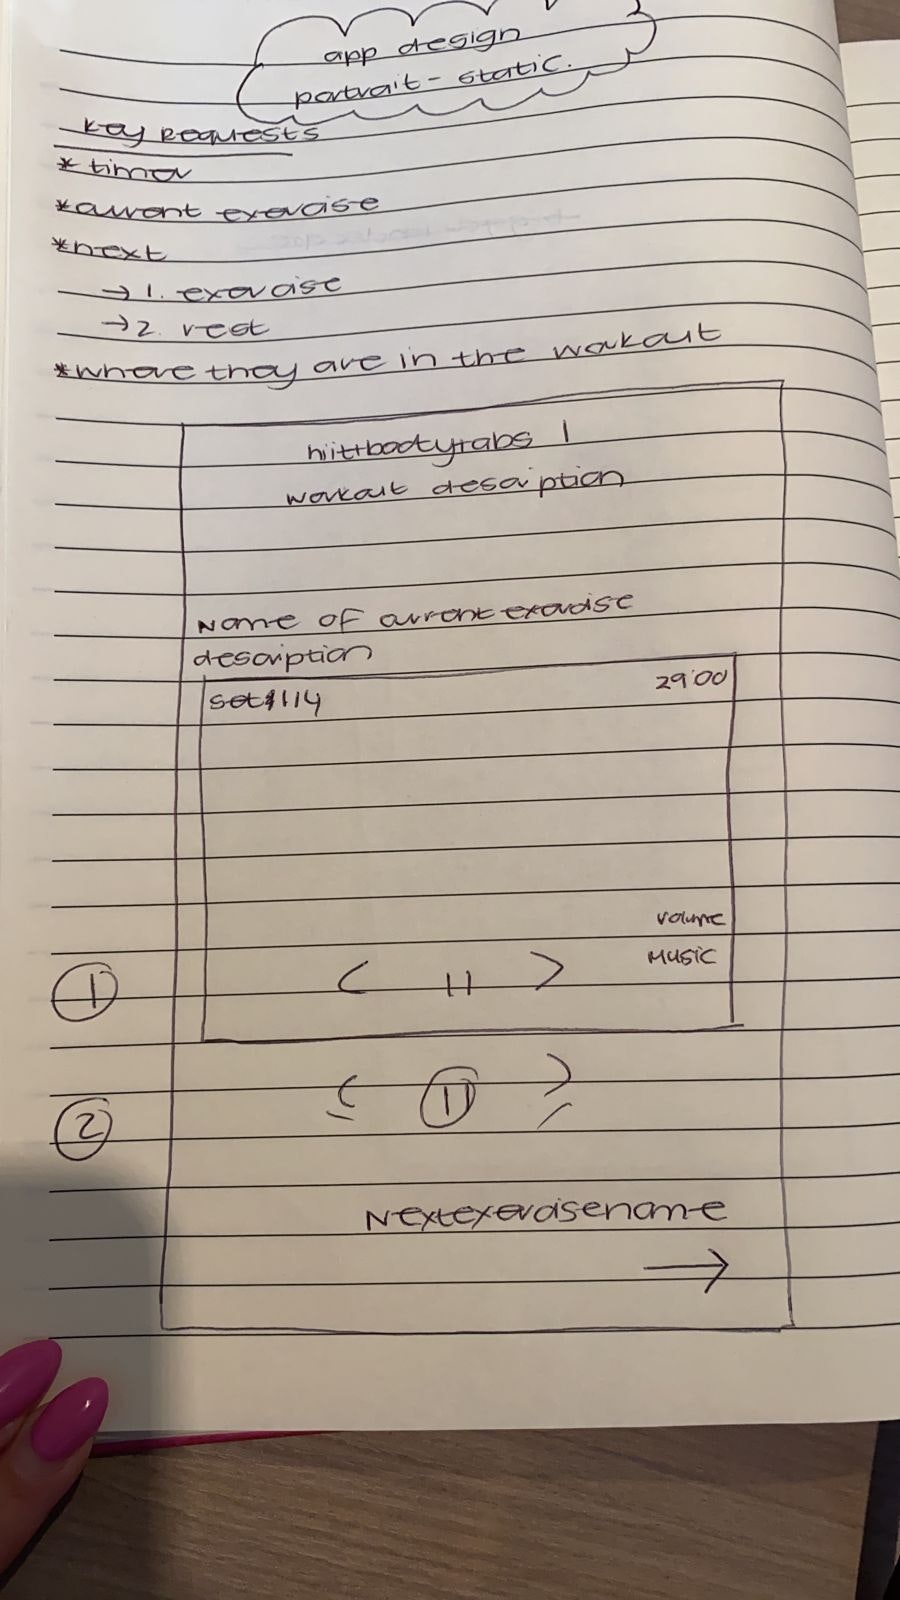 app design
portrait - static.
Key Requests
* timer
* current exercise
* next
→ 1. exercise
→ 2. rest
* where they are in the workout
hiit+body+abs 1
workout description
Name of current exercise
description
29:00
volume
MUSIC
< || >
1
< || >
2
Next exercise name
→